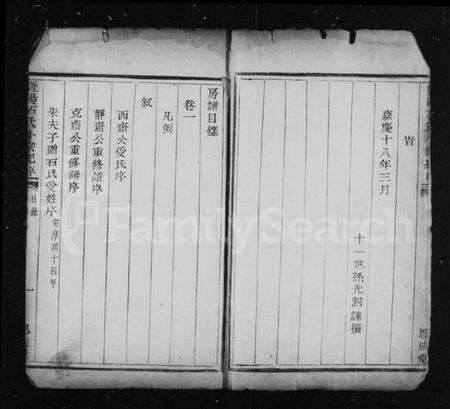 皆
嘉慶十八年三月
十一世孫光泗謹撰
思成堂
房譜目錄
卷一
凡例
敘
西齋公受氏序
靜齋公重修譜序
克齋公重修譜序
朱夫子贈石氏受姓序 宋淳熙十四年
暨陽石氏
目錄
一
FamilySearch